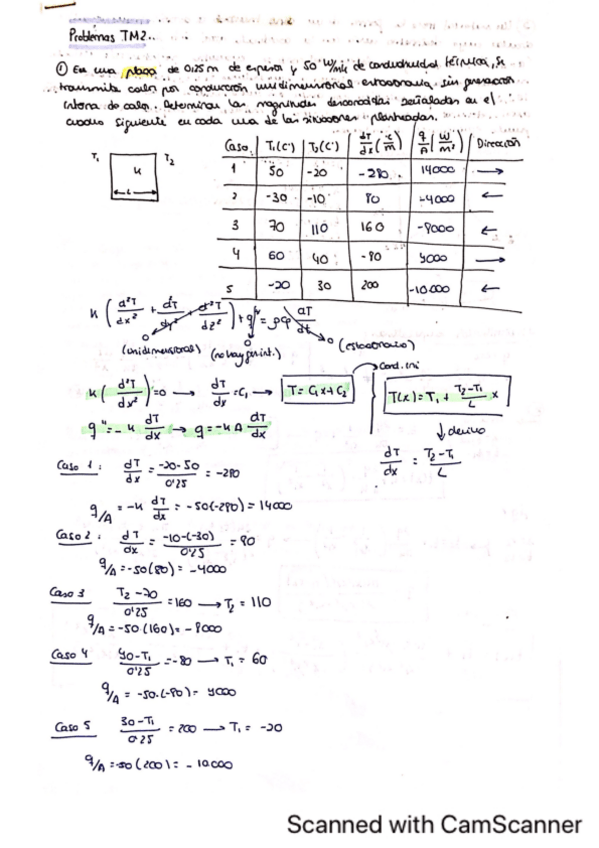 Problemas TM2..
① En una placa de 0,25m de espesor y 50 W/mk de conductividad térmica, se
transmite calor por conducción unidimensional estacionaria, sin generación
interna de calor. Determinar las magnitudes desconocidas señaladas en el
cuadro siguiente en cada una de las situaciones planteadas.
Caso T₁(C°) T₂(C°) dT/dx (°C/m) q/A (W/m²) Dirección
1 50 -20 -280 14000 →
2 -30 -10 80 -4000 ←
3 70 110 160 -8000 ←
4 60 40 -80 4000 →
5 -20 30 200 -10000 ←
T₁ K T₂
L
K (d²T/dx² + dT/dy² + d²T/dz²) + q''' = ρCp dT/dt
0 0 0 (estacionario)
(unidimensional) (no hay gen.int.)
K (d²T/dx²) = 0 → dT/dx = C₁ → T = C₁x + C₂
Cond. ini
T(x) = T₁ + T₂-T₁/L x
q'' = -K dT/dx → q = -KA dT/dx
↓ derivo
dT/dx = T₂-T₁/L
Caso 1: dT/dx = -20-50/0'25 = -280
q/A = -K dT/dx = -50(-280) = 14000
Caso 2: dT/dx = -10-(-30)/0'25 = 80
q/A = -50(80) = -4000
Caso 3 T₂-70/0'25 = 160 → T₂ = 110
q/A = -50·(160) = -8000
Caso 4 40-T₁/0'25 = -80 → T₁ = 60
q/A = -50·(-80) = 4000
Caso 5 30-T₁/0'25 = 200 → T₁ = -20
q/A = -50(200) = -10000
Scanned with CamScanner